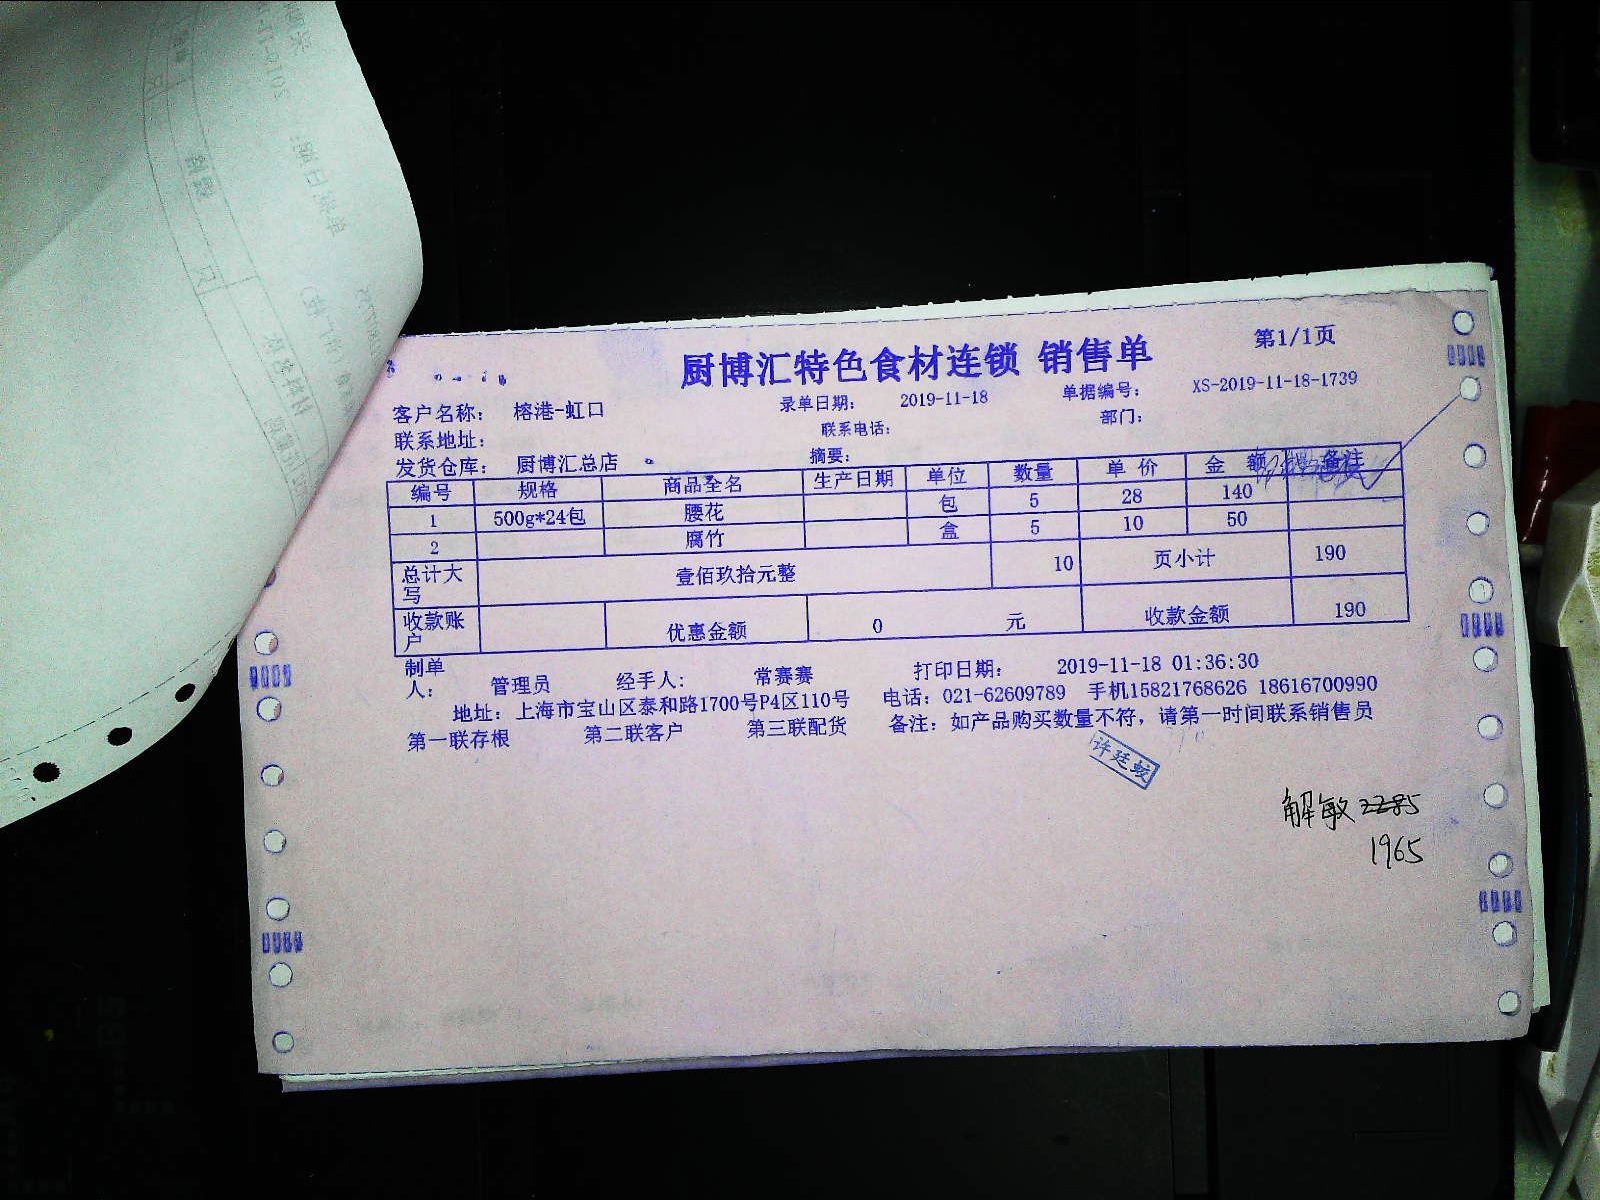 厨博汇特色食材连锁 销售单 第1/1页
客户名称： 榕港-虹口 录单日期： 2019-11-18 单据编号： XS-2019-11-18-1739
联系地址： 联系电话： 部门：
发货仓库： 厨博汇总店 摘要：
编号 规格 商品全名 生产日期 单位 数量 单价 金额 备注
1 500g*24包 腰花 包 5 28 140
2 腐竹 盒 5 10 50
总计大写 壹佰玖拾元整 10 页小计 190
收款账户 优惠金额 0 元 收款金额 190
制单人： 管理员 经手人： 常赛赛 打印日期： 2019-11-18 01:36:30
地址：上海市宝山区泰和路1700号P4区110号 电话：021-62609789 手机15821768626 18616700990
第一联存根 第二联客户 第三联配货 备注：如产品购买数量不符，请第一时间联系销售员
许廷蛟
解敏
1965